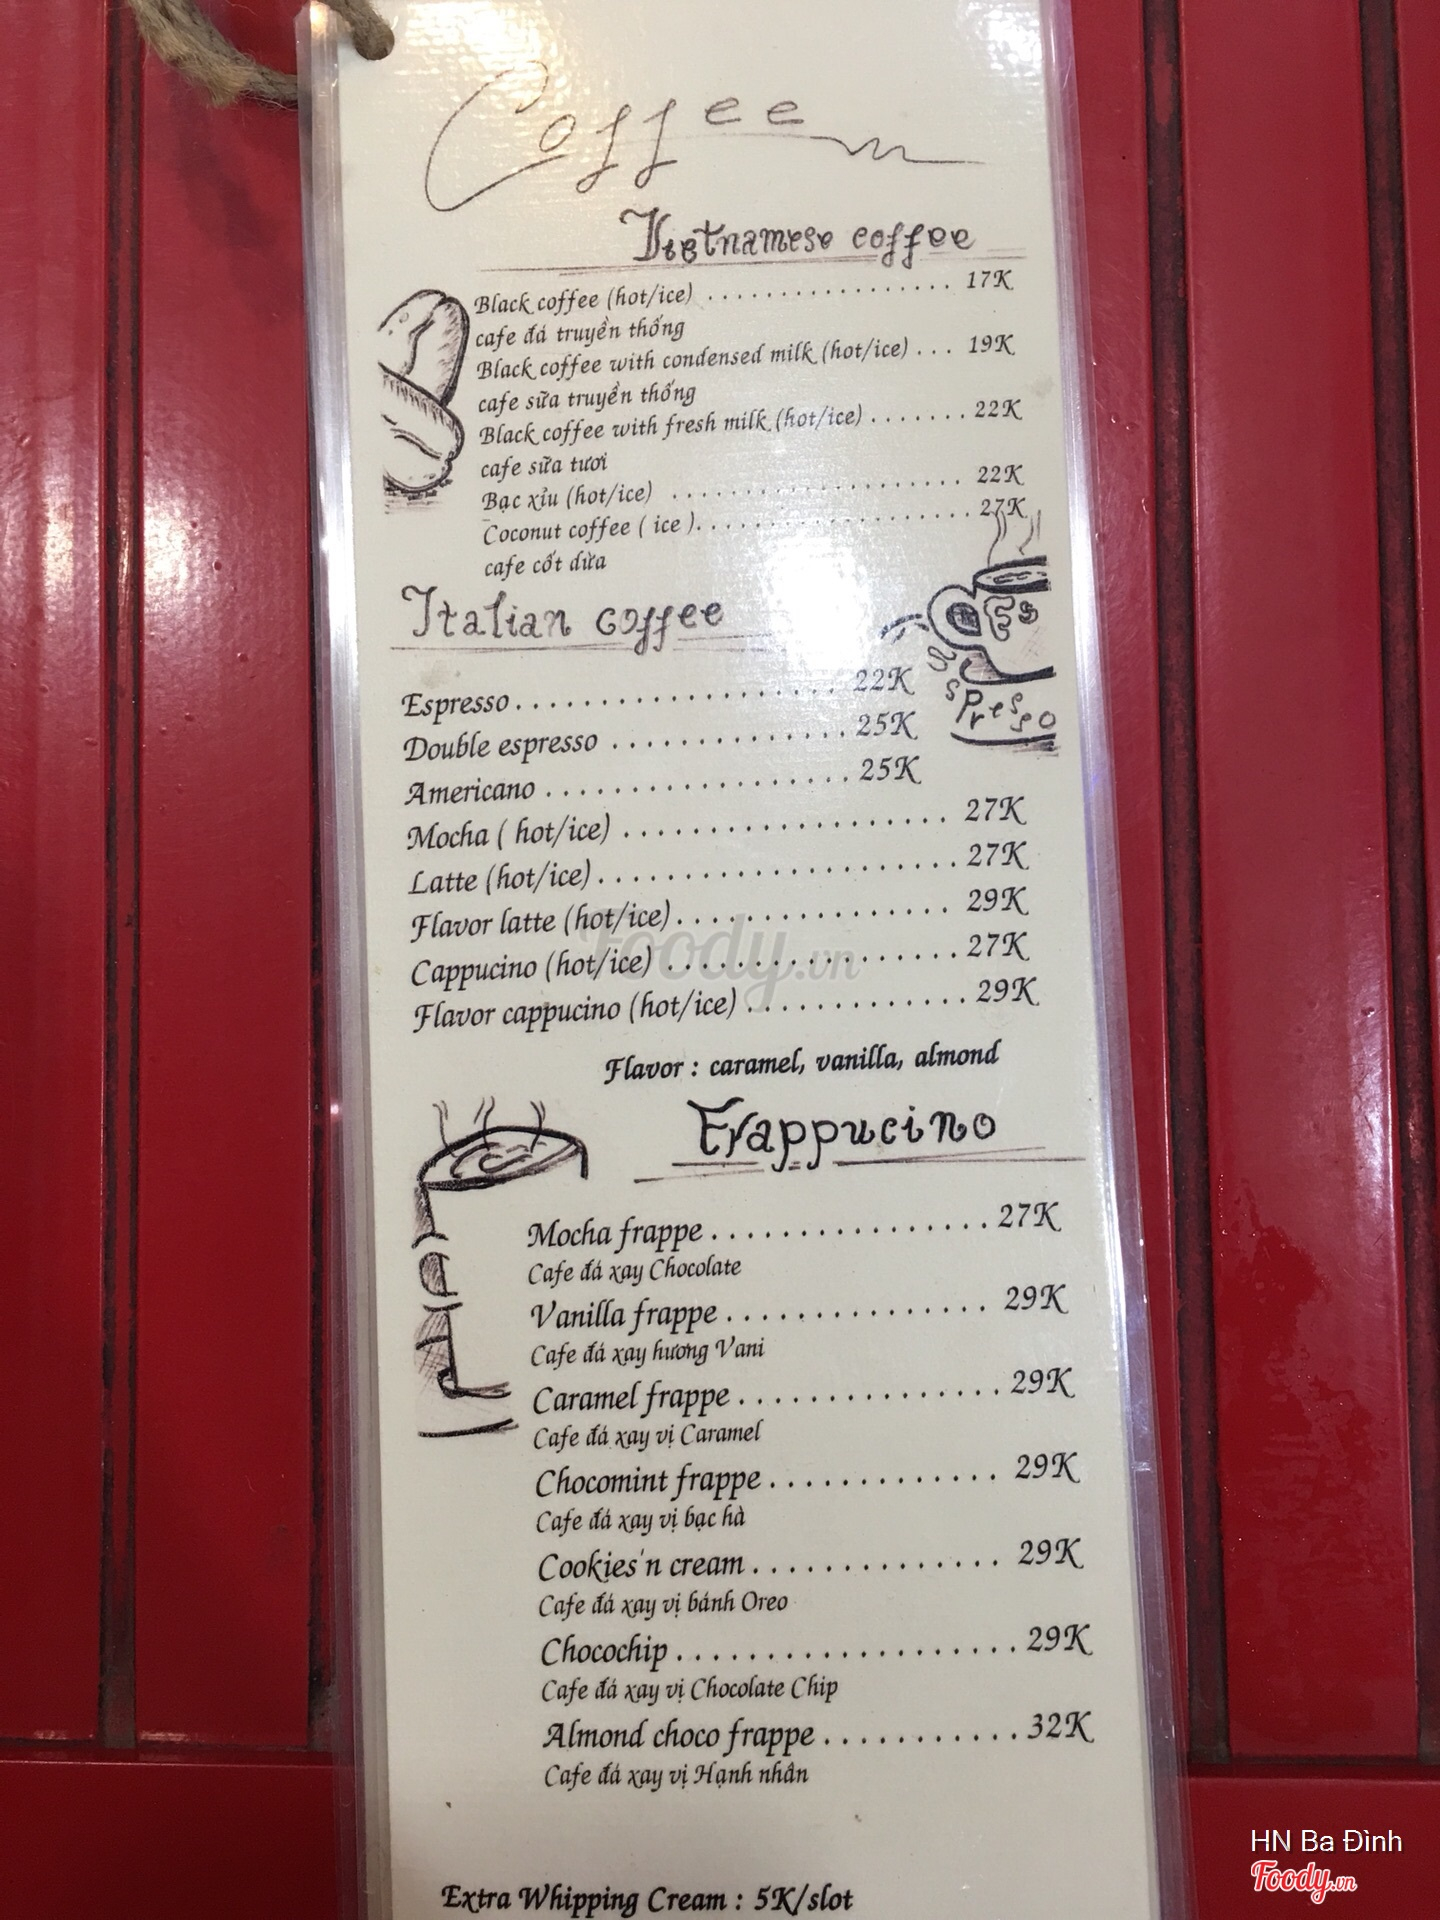 Coffee
Vietnamese coffee
Black coffee (hot/ice) .................. 17K
cafe đá truyền thống
Black coffee with condensed milk (hot/ice) ... 19K
cafe sữa truyền thống
Black coffee with fresh milk (hot/ice) ....... 22K
cafe sữa tươi
Bạc xỉu (hot/ice) ..................... 22K
Coconut coffee ( ice ).................... 27K
cafe cốt dừa
Es
spresso
Italian coffee
Espresso....................... 22K
Double espresso ................. 25K
Americano ..................... 25K
Mocha ( hot/ice) .................... 27K
Latte (hot/ice)...................... 27K
Flavor latte (hot/ice)................. 29K
Cappucino (hot/ice) .................. 27K
Flavor cappucino (hot/ice) ............. 29K
Flavor : caramel, vanilla, almond
Frappucino
Mocha frappe................ 27K
Cafe đá xay Chocolate
Vanilla frappe............... 29K
Cafe đá xay hương Vani
Caramel frappe............... 29K
Cafe đá xay vị Caramel
Chocomint frappe............. 29K
Cafe đá xay vị bạc hà
Cookies'n cream.............. 29K
Cafe đá xay vị bánh Oreo
Chocochip................... 29K
Cafe đá xay vị Chocolate Chip
Almond choco frappe........... 32K
Cafe đá xay vị Hạnh nhân
Extra Whipping Cream : 5K/slot
Foody.vn
HN Ba Đình
Foody.vn